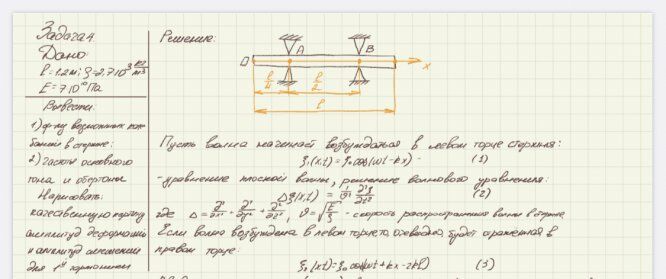 Задача 4
Дано:
l=1.2м; ρ=2,7·10³ кг/м³
E=7·10¹⁰Па
Вывести:
1) ф-лу возможных коле-
баний в стержне;
2) частоты основного
тона и обертоны
Нарисовать:
качественную картину
амплитуд деформации
и амплитуд смещения
для 1ой гармоники
Решение:
A
B
0
x
l/4
l/2
l
Пусть волна начинает возбуждаться в левом торце стержня:
ξ₁(x,t) = ξ₀cos(ωt-kx) - (1)
- уравнение плоской волны, решение волнового уравнения:
Δξ(x,t) = 1/v² ∂²ξ/∂t² (2)
где Δ = ∂²/∂x² + ∂²/∂y² + ∂²/∂z², v = √(E/ρ) - скорость распространения волны в стержне
Если волна возбуждена в левом торце, то, очевидно, будет отраженная в
правом торце:
ξ₂(x,t) = ξ₀cos(ωt+kx-2kl) (3)